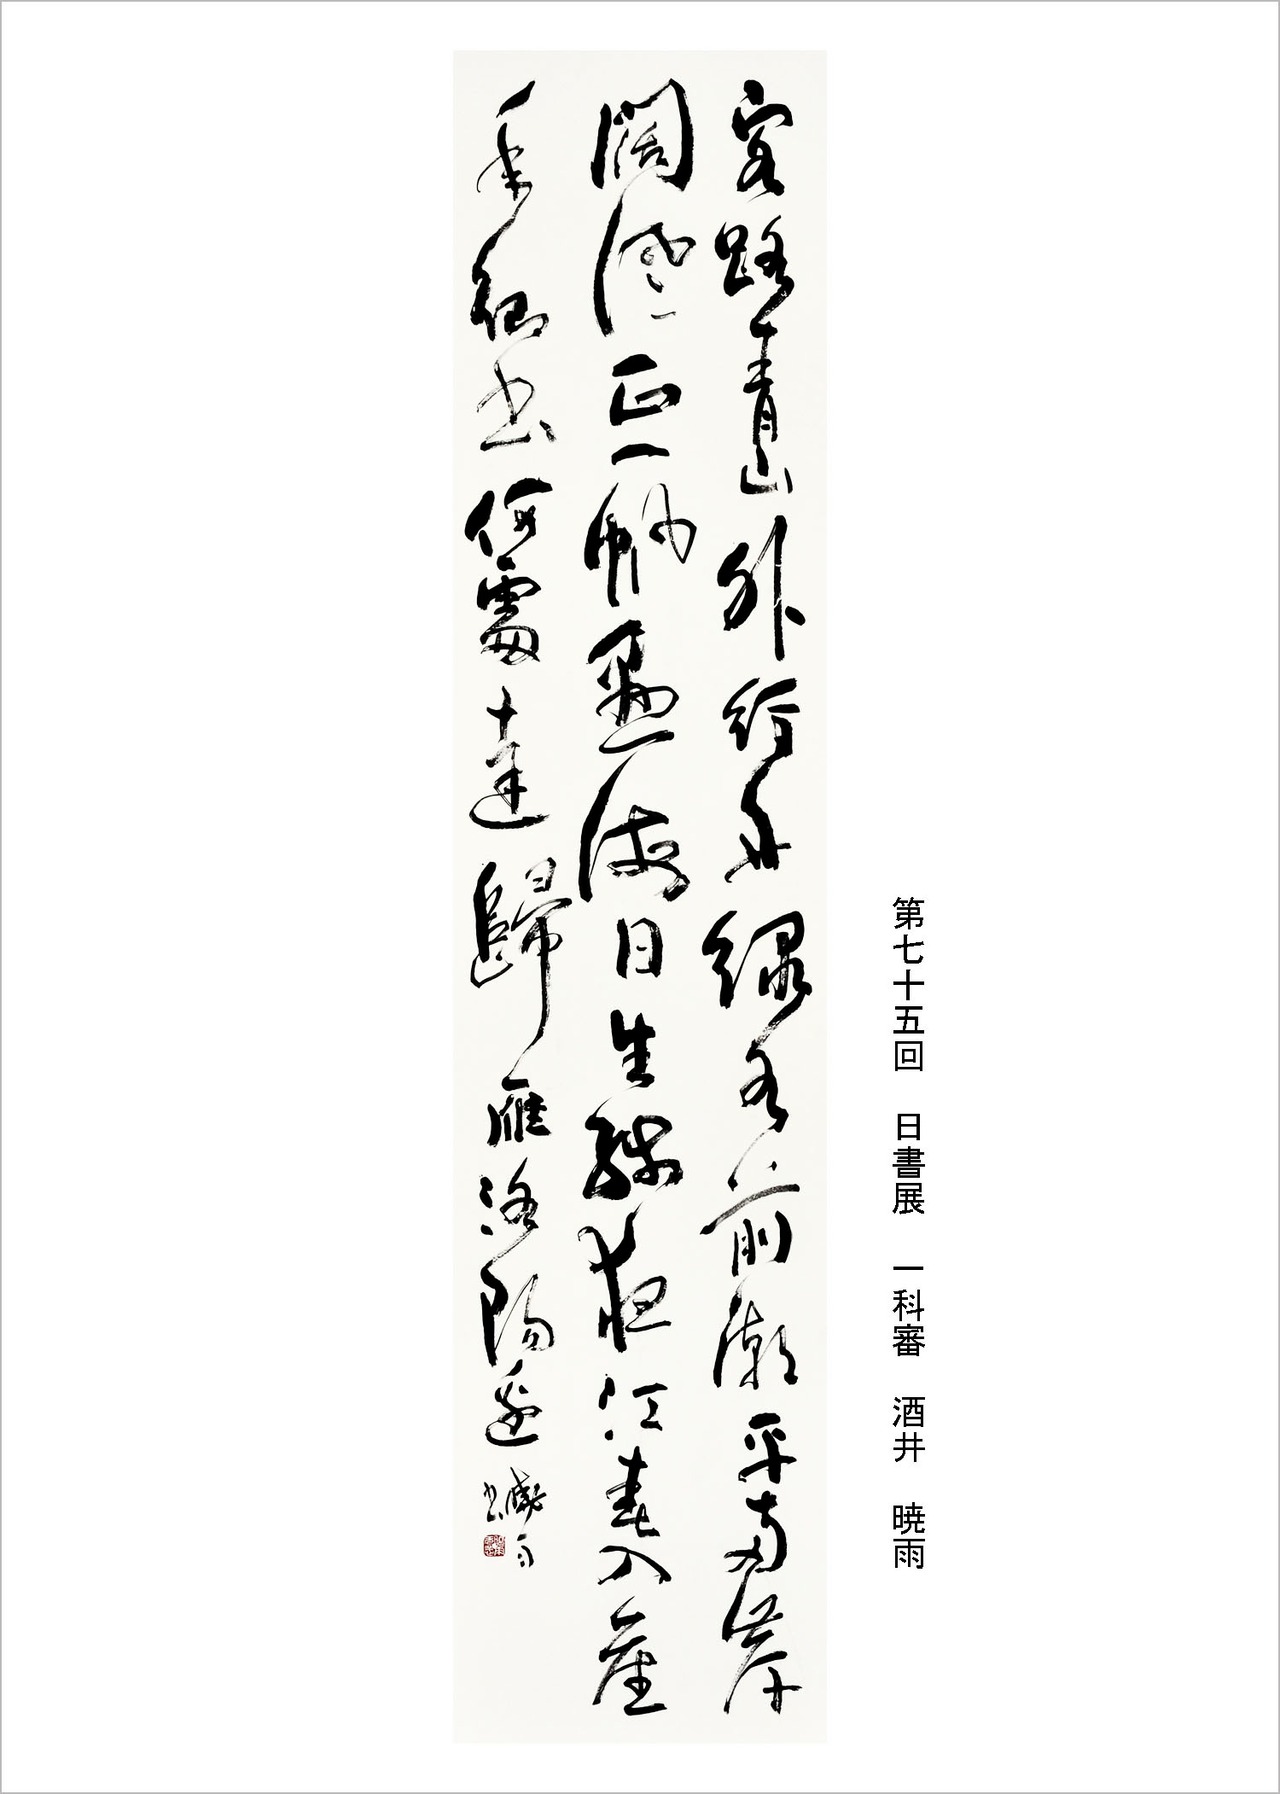 第七十五回　日書展　一科審　酒井　暁雨
客路青山外行舟緑水前潮平兩岸
闊風正一帆懸海日生殘夜江春入舊
年鄉書何處達歸雁洛陽邊 曉雨
書